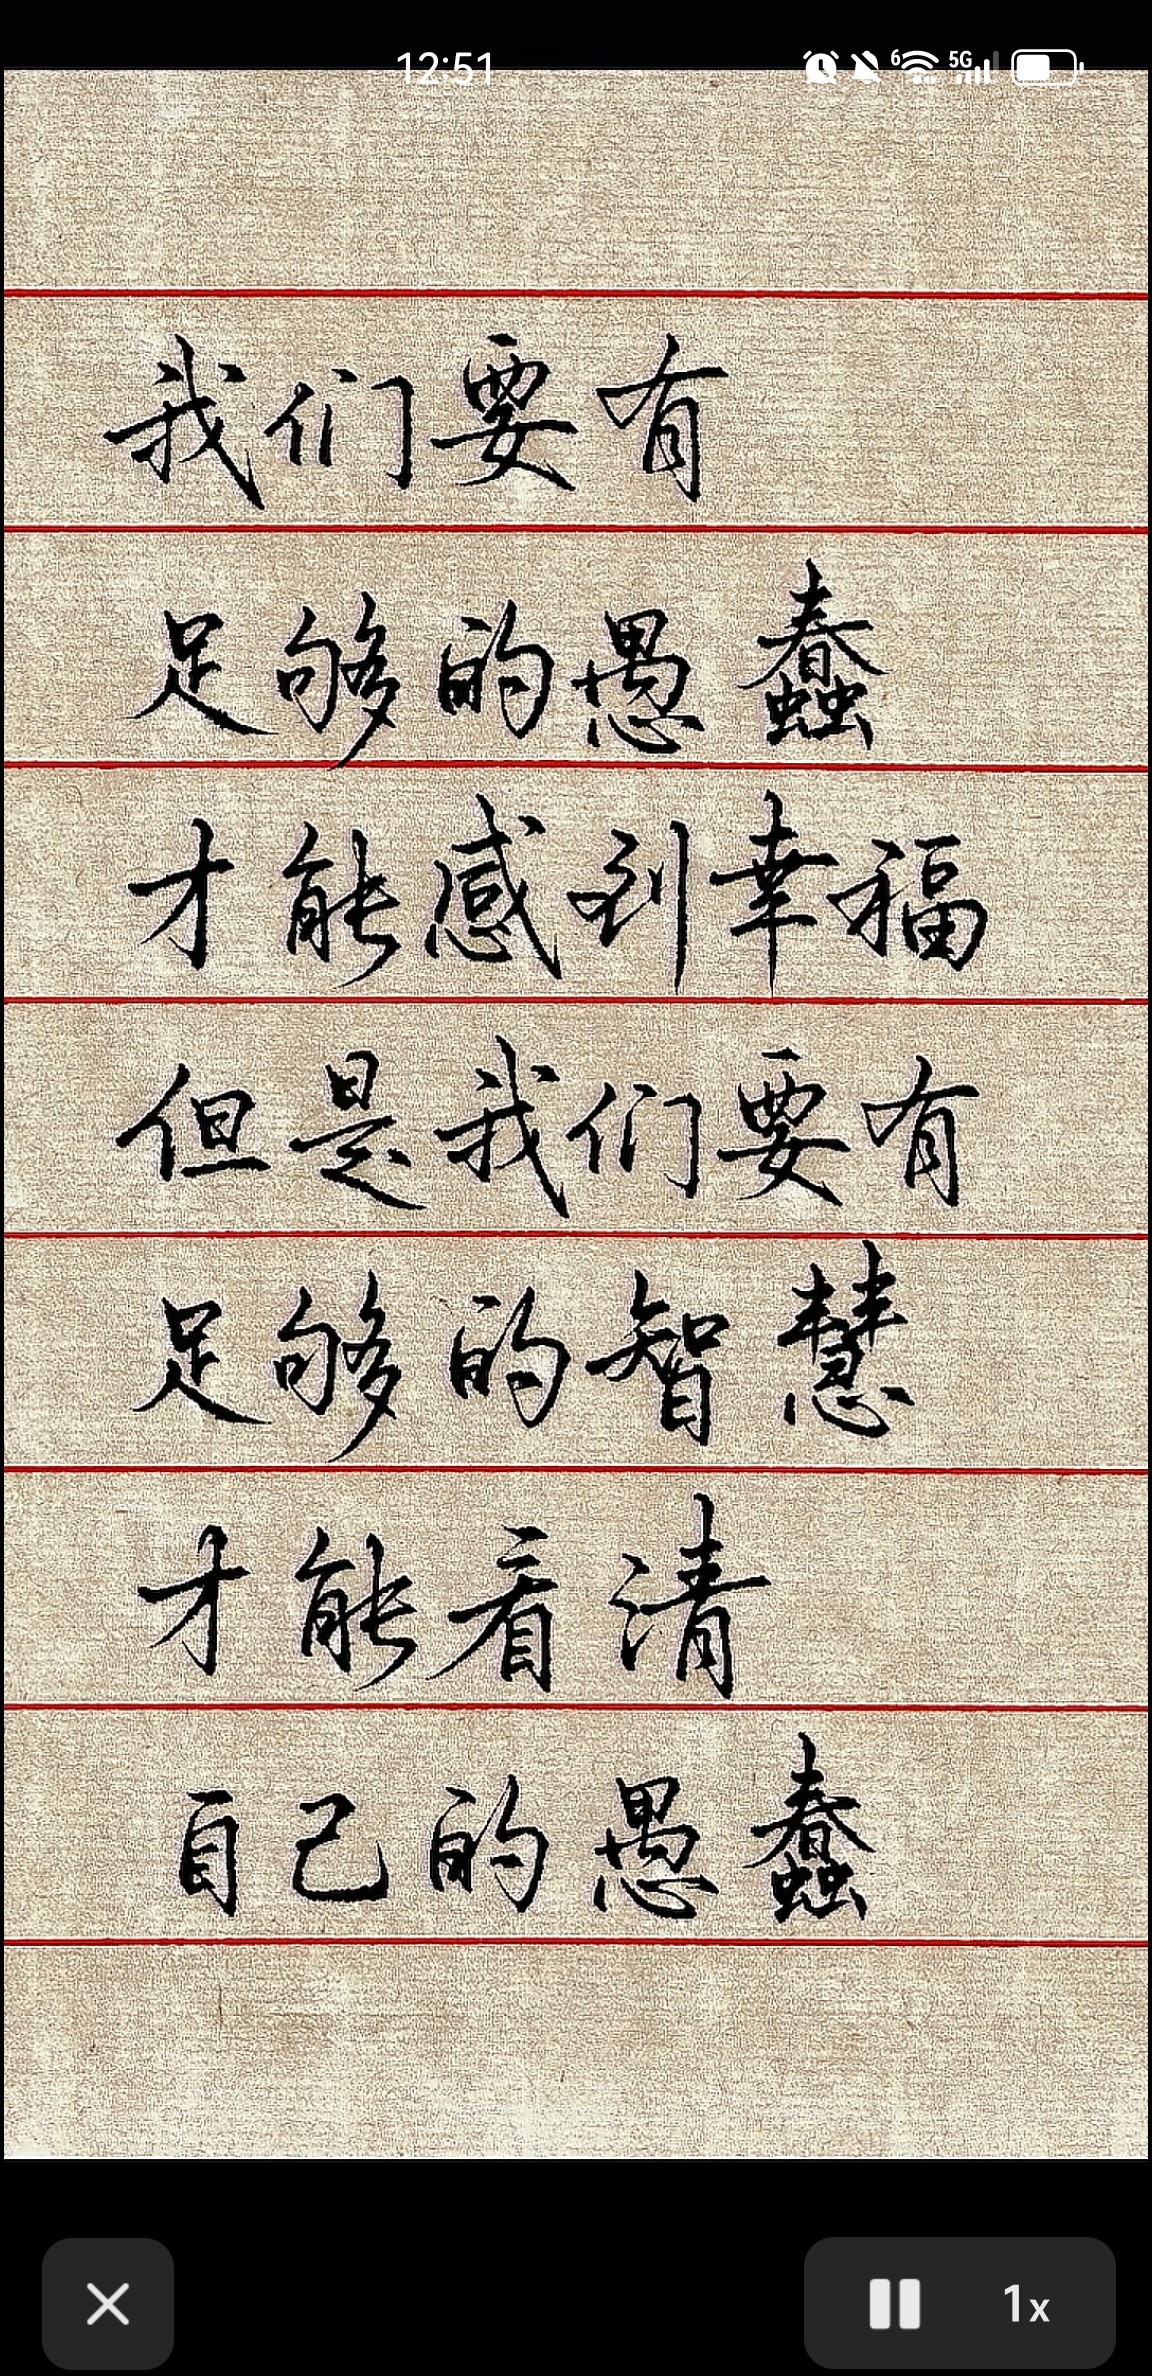 12:51
6
5G
我们要有
足够的愚蠢
才能感到幸福
但是我们要有
足够的智慧
才能看清
自己的愚蠢
1x